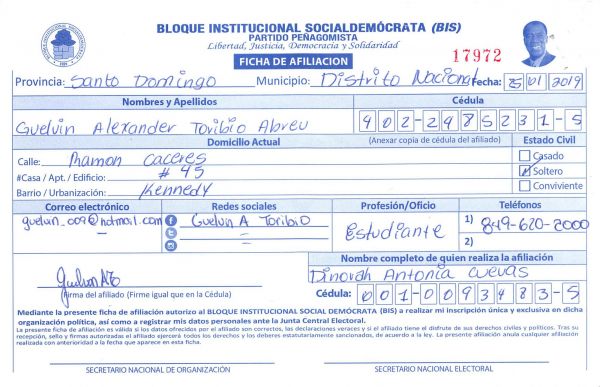 BLOQUE INSTITUCIONAL SOCIALDEMÓCRATA (BIS)
PARTIDO PEÑAGOMISTA
Libertad, Justicia, Democracia y Solidaridad
FICHA DE AFILIACION
17972
Provincia: Santo Domingo Municipio: Distrito Nacional Fecha: 25/01/2019
Nombres y Apellidos Cédula
Guelvin Alexander Toribio Abreu 402-2485231-5
Domicilio Actual (Anexar copia de cédula del afiliado) Estado Civil
Calle: Ramon Caceres Casado
#Casa / Apt. / Edificio: # 45 Soltero
Barrio / Urbanización: Kennedy Conviviente
Correo electrónico Redes sociales Profesión/Oficio Teléfonos
guelvin_009@hotmail.com Guelvin A Toribio Estudiante 1) 849-620-2000
2)
Nombre completo de quien realiza la afiliación
Dinorah Antonia Cuevas
Firma del afiliado (Firme igual que en la Cédula) Cédula: 001-0093483-5
Mediante la presente ficha de afiliación autorizo al BLOQUE INSTITUCIONAL SOCIAL DEMÓCRATA (BIS) a realizar mi inscripción única y exclusiva en dicha
organización política, así como a registrar mis datos personales ante la Junta Central Electoral.
La presente ficha de afiliación es válida si los datos ofrecidos por el afiliado son correctos, las declaraciones veraces y si el afiliado tiene el disfrute de sus derechos civiles y políticos. Tras su
recepción, sello y firmas autorizadas el afiliado ejercerá todos los derechos y los deberes estatutariamente sancionados, de acuerdo a la ley. La presente afiliación anula cualquier afiliación
realizada con anterioridad a la fecha que aparece en esta ficha.
SECRETARIO NACIONAL DE ORGANIZACIÓN SECRETARIO NACIONAL ELECTORAL